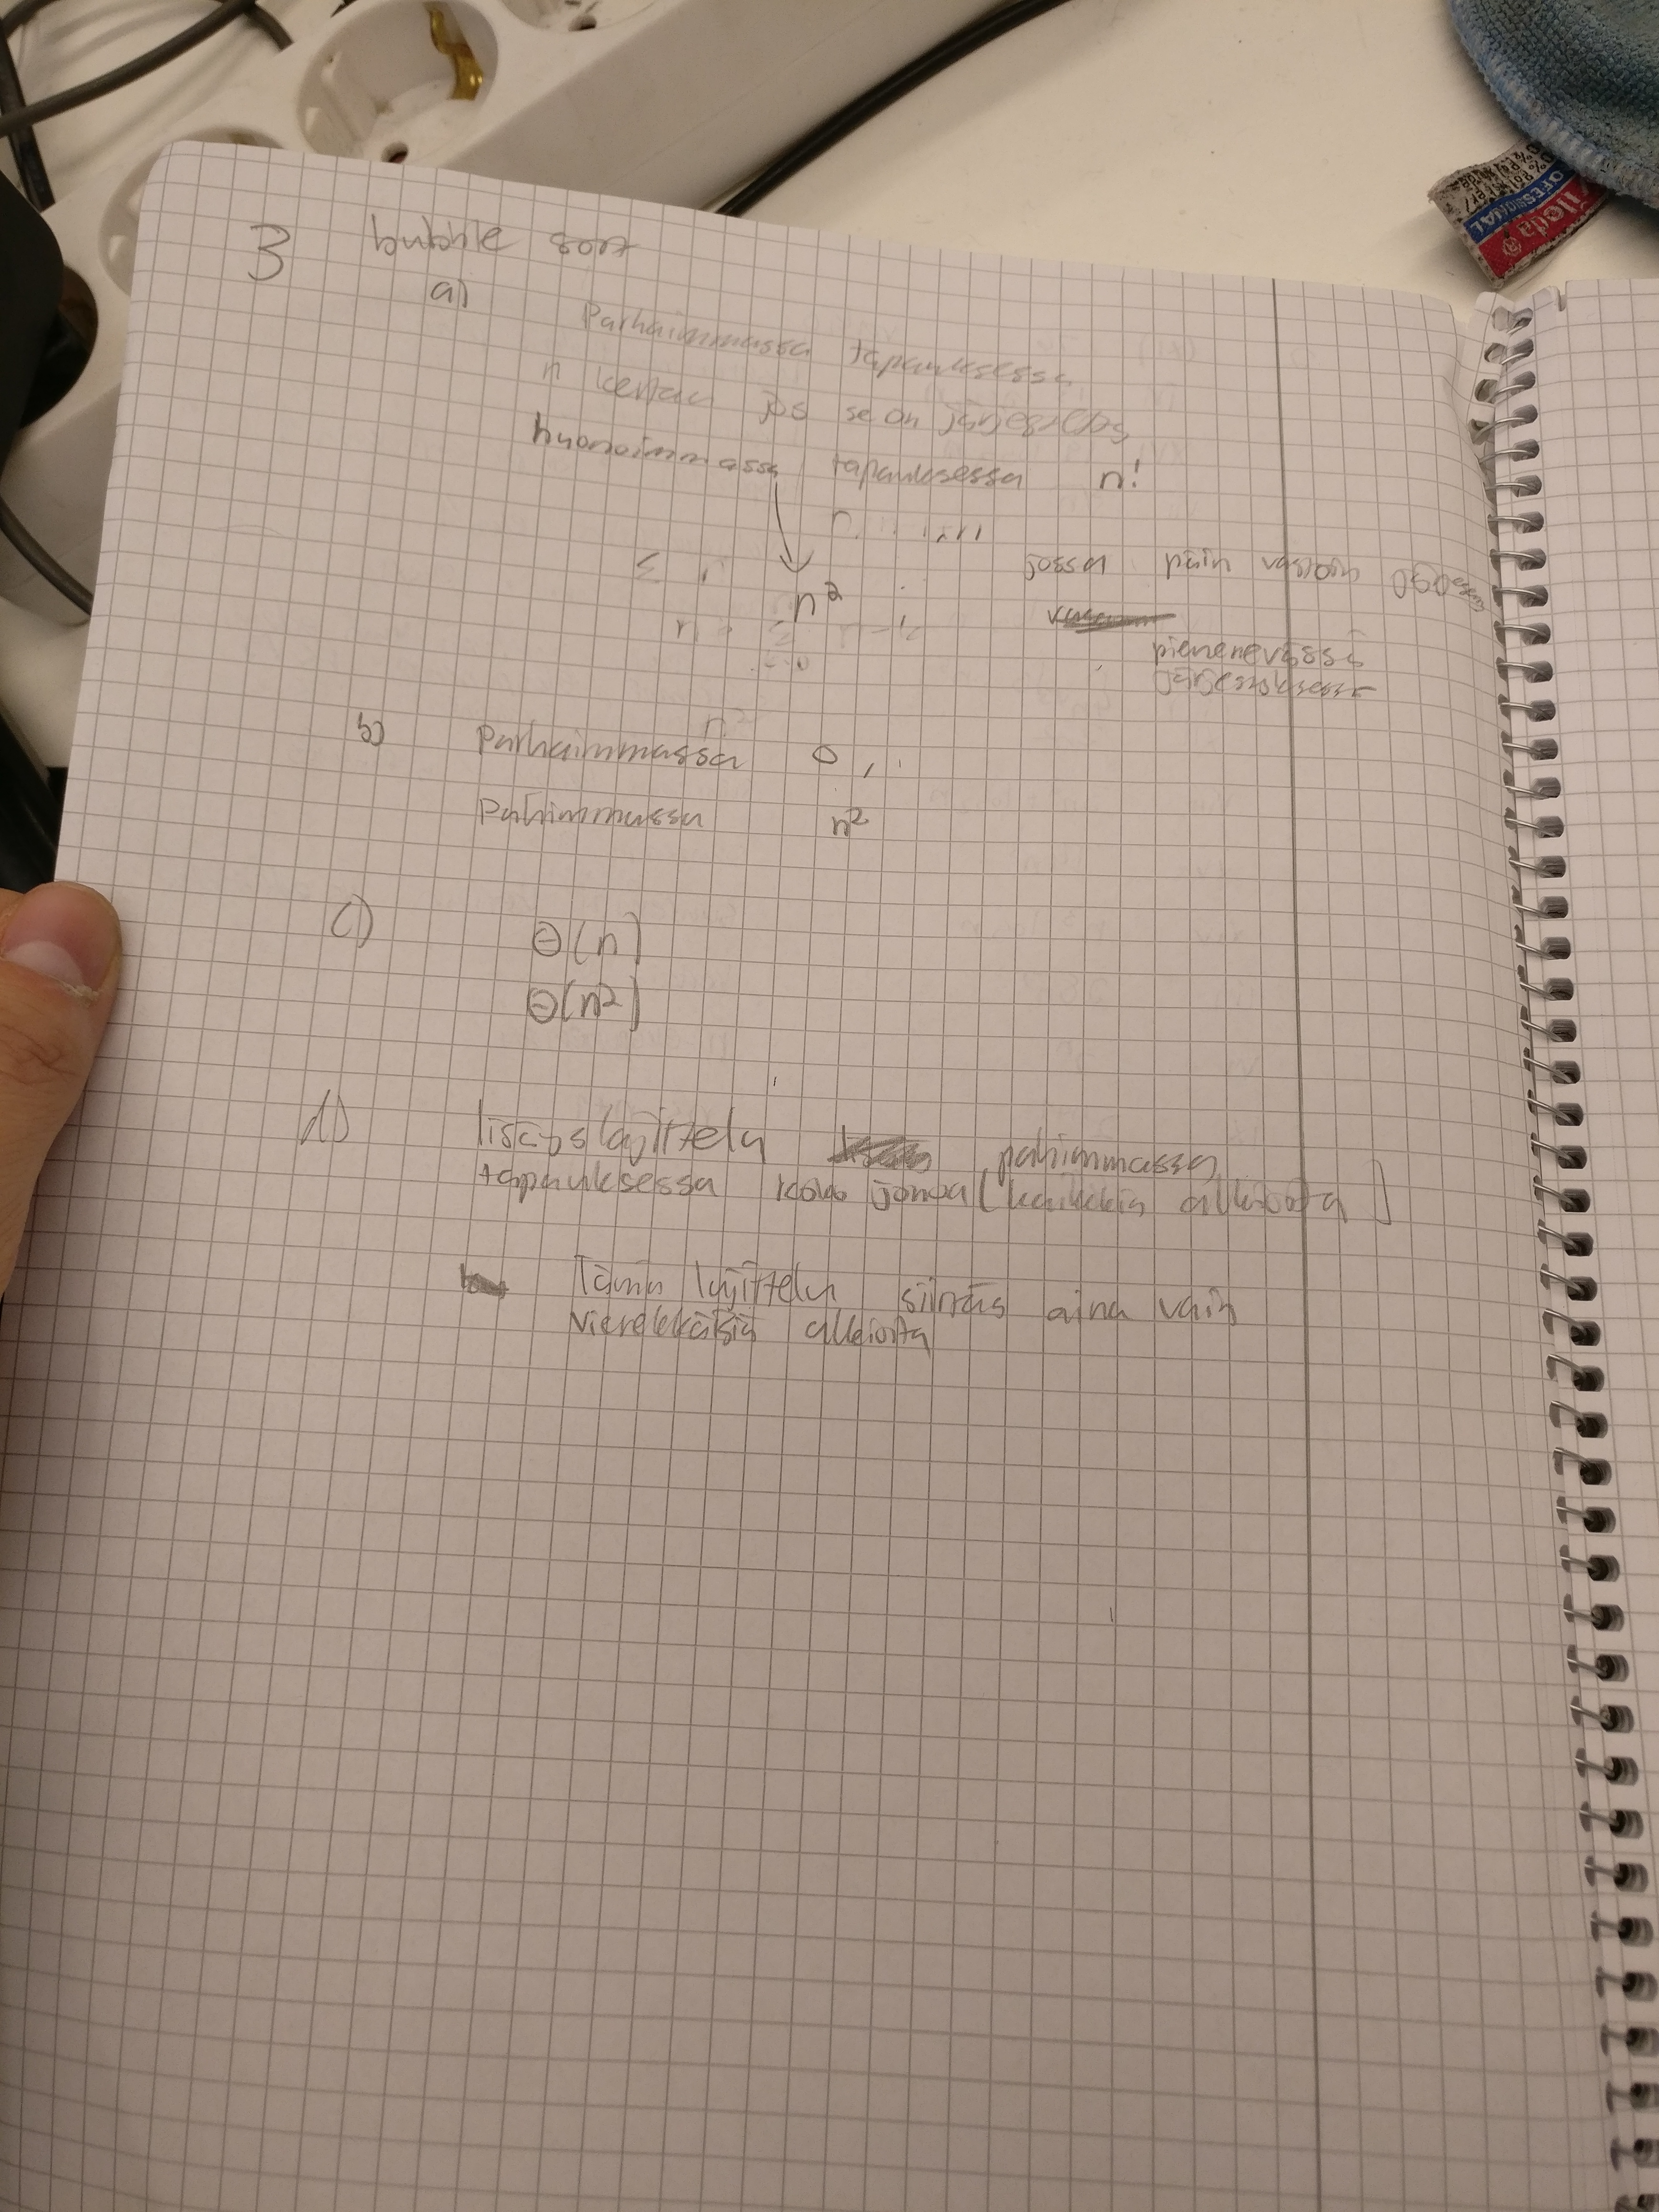 3 bubble sort
a)
Parhaimmassa tapauksessa
n kertaa jos se on
huonoimmassa tapauksessa n!
n²
jossa päin vastoin
pienenevässä
järjestyksessä
b) Parhaimmassa 0
Pahimmassa n²
c) Θ(n)
Θ(n²)
d) lisäyslajittelu pahimmassa
tapauksessa koko jonoa (kaikkia alkioita)
Tämä lajittelu siirtää aina vain
vierekkäisiä alkioita